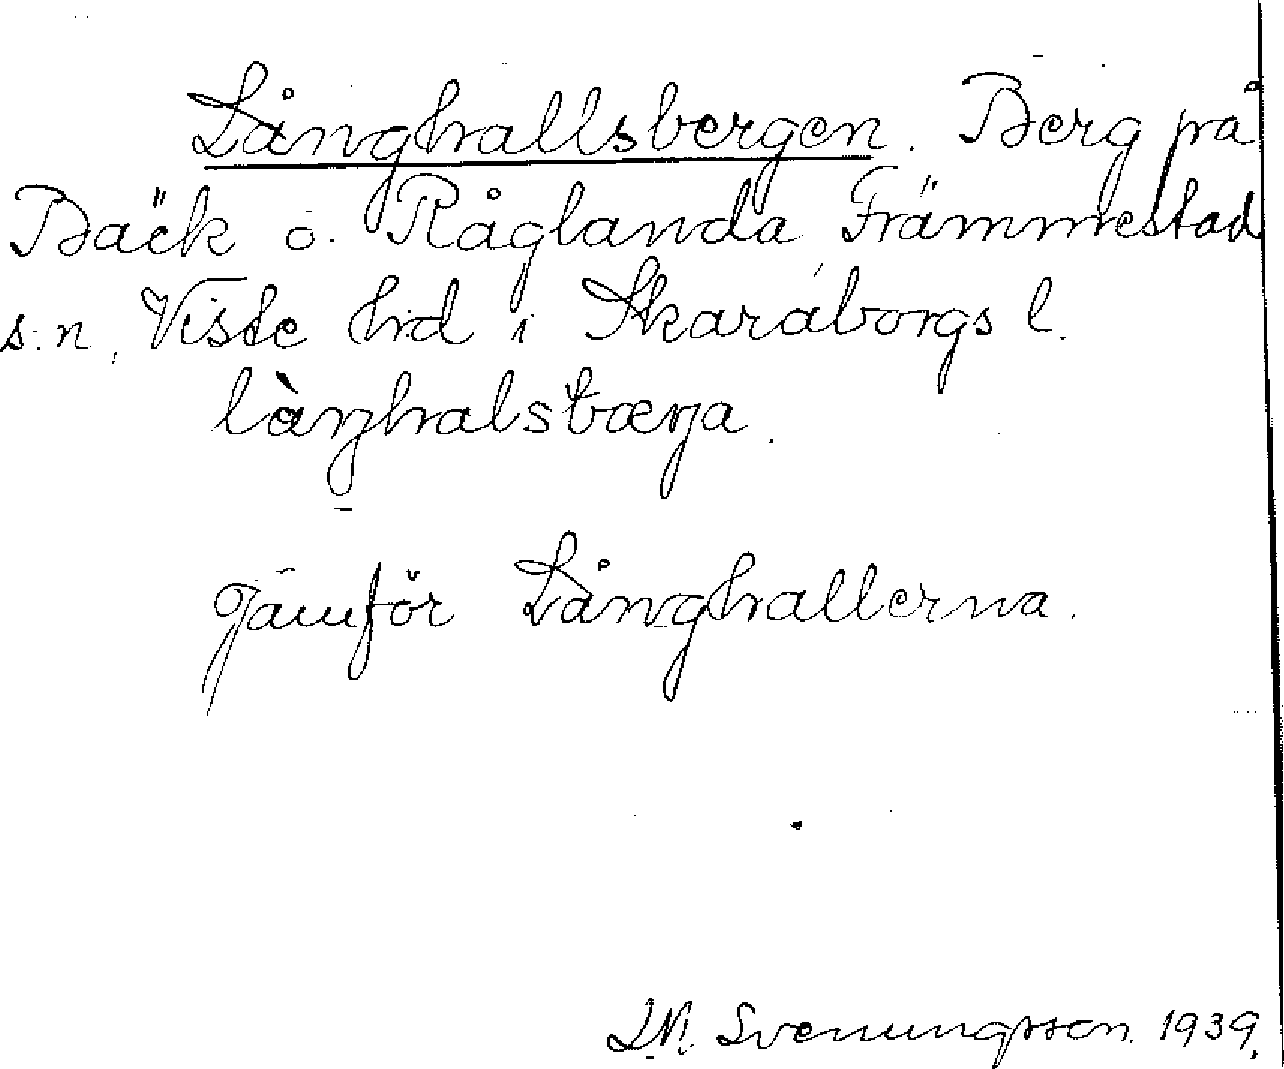 Långhallsbergen. Berg på
Bäck o. Råglanda Främmestad
s:n, Viste hrd i Skaraborgs l.
làŋhalsbærja.
Jämför Långhallerna.
Svenungsson. 1939.